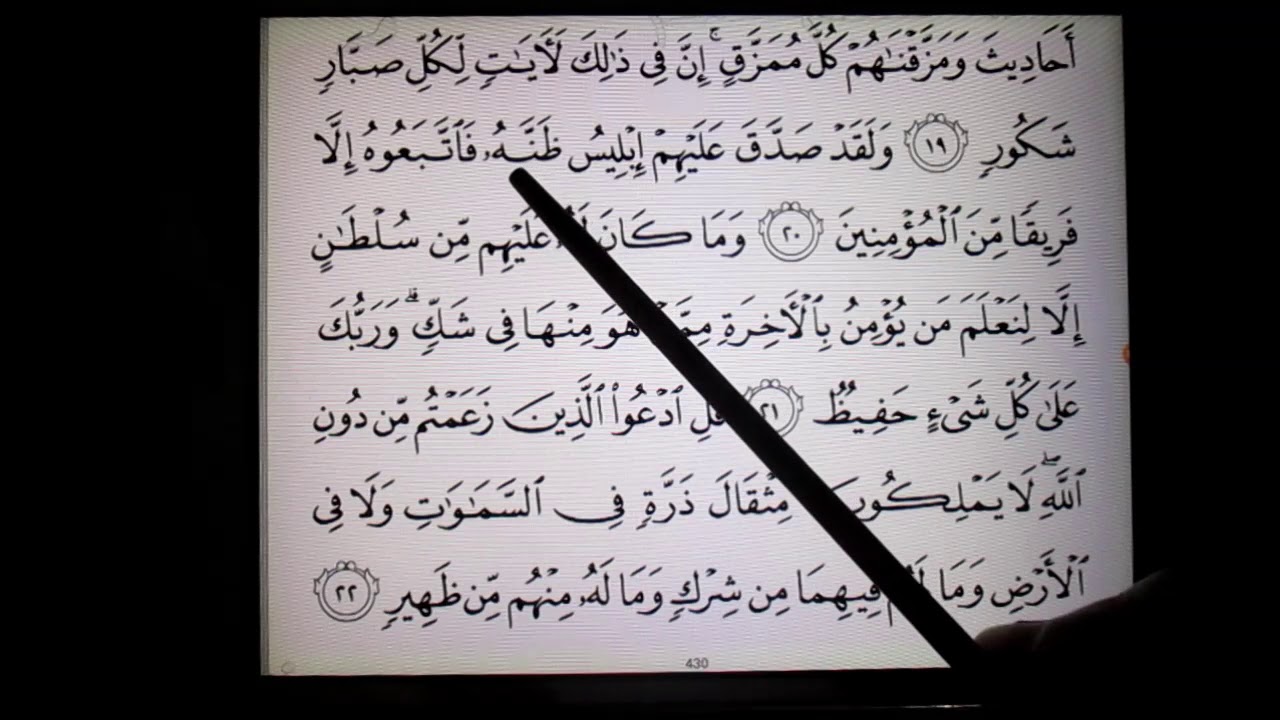 أَحَادِيثَ وَمَزَّقْنَـٰهُمْ كُلَّ مُمَزَّقٍ ۚ إِنَّ فِى ذَٰلِكَ لَـَٔايَـٰتٍ لِّكُلِّ صَبَّارٍ
شَكُورٍ ١٩ وَلَقَدْ صَدَّقَ عَلَيْهِمْ إِبْلِيسُ ظَنَّهُۥ فَٱتَّبَعُوهُ إِلَّا
فَرِيقًا مِّنَ ٱلْمُؤْمِنِينَ ٢٠ وَمَا كَانَ عَلَيْهِم مِّن سُلْطَـٰنٍ
إِلَّا لِنَعْلَمَ مَن يُؤْمِنُ بِٱلْـَٔاخِرَةِ مِمَّنْ هُوَ مِنْهَا فِى شَكٍّ ۗ وَرَبُّكَ
عَلَىٰ كُلِّ شَىْءٍ حَفِيظٌ ٢١ قُلِ ٱدْعُوا۟ ٱلَّذِينَ زَعَمْتُم مِّن دُونِ
ٱللَّهِ ۖ لَا يَمْلِكُونَ مِثْقَالَ ذَرَّةٍ فِى ٱلسَّمَـٰوَٰتِ وَلَا فِى
ٱلْأَرْضِ وَمَا فِيهِمَا مِن شِرْكٍ وَمَا لَهُۥ مِنْهُم مِّن ظَهِيرٍ ٢٢
430